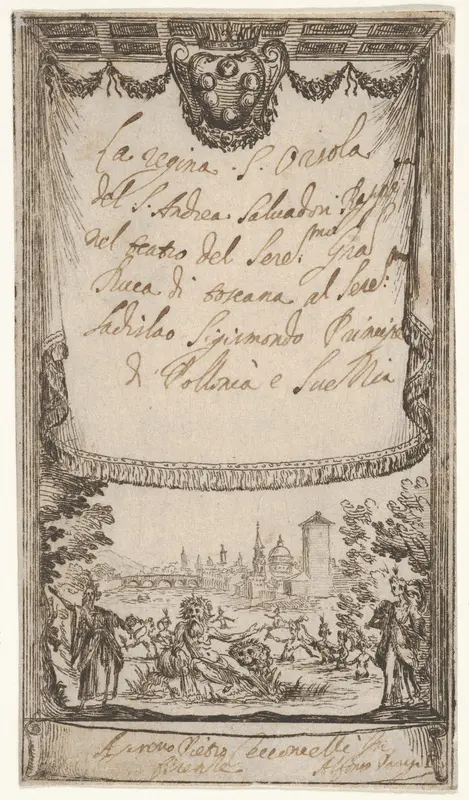 La regina S. Orsola
del S. Andrea Salvadori
nel teatro del Sere.mo Gra
Duca di toscana al Sere.
Ladislao Sigismondo Principe
di Pollonia e Suettia
Pietro Cecconcelli
firenze Alfonso Parigi